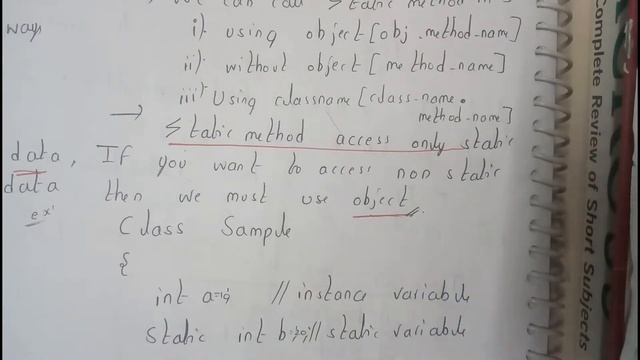 , we can call static method in 3
way
i) using object [obj.method-name]
ii) without object [method-name]
iii) Using classname [class-name.
method-name]
→ Static method access only static
data, If you want to access non static
data then we must use object.
ex:
Class Sample
{
int a=10; // instance variable
static int b=20; // static variable
Complete Review of Short Subjects